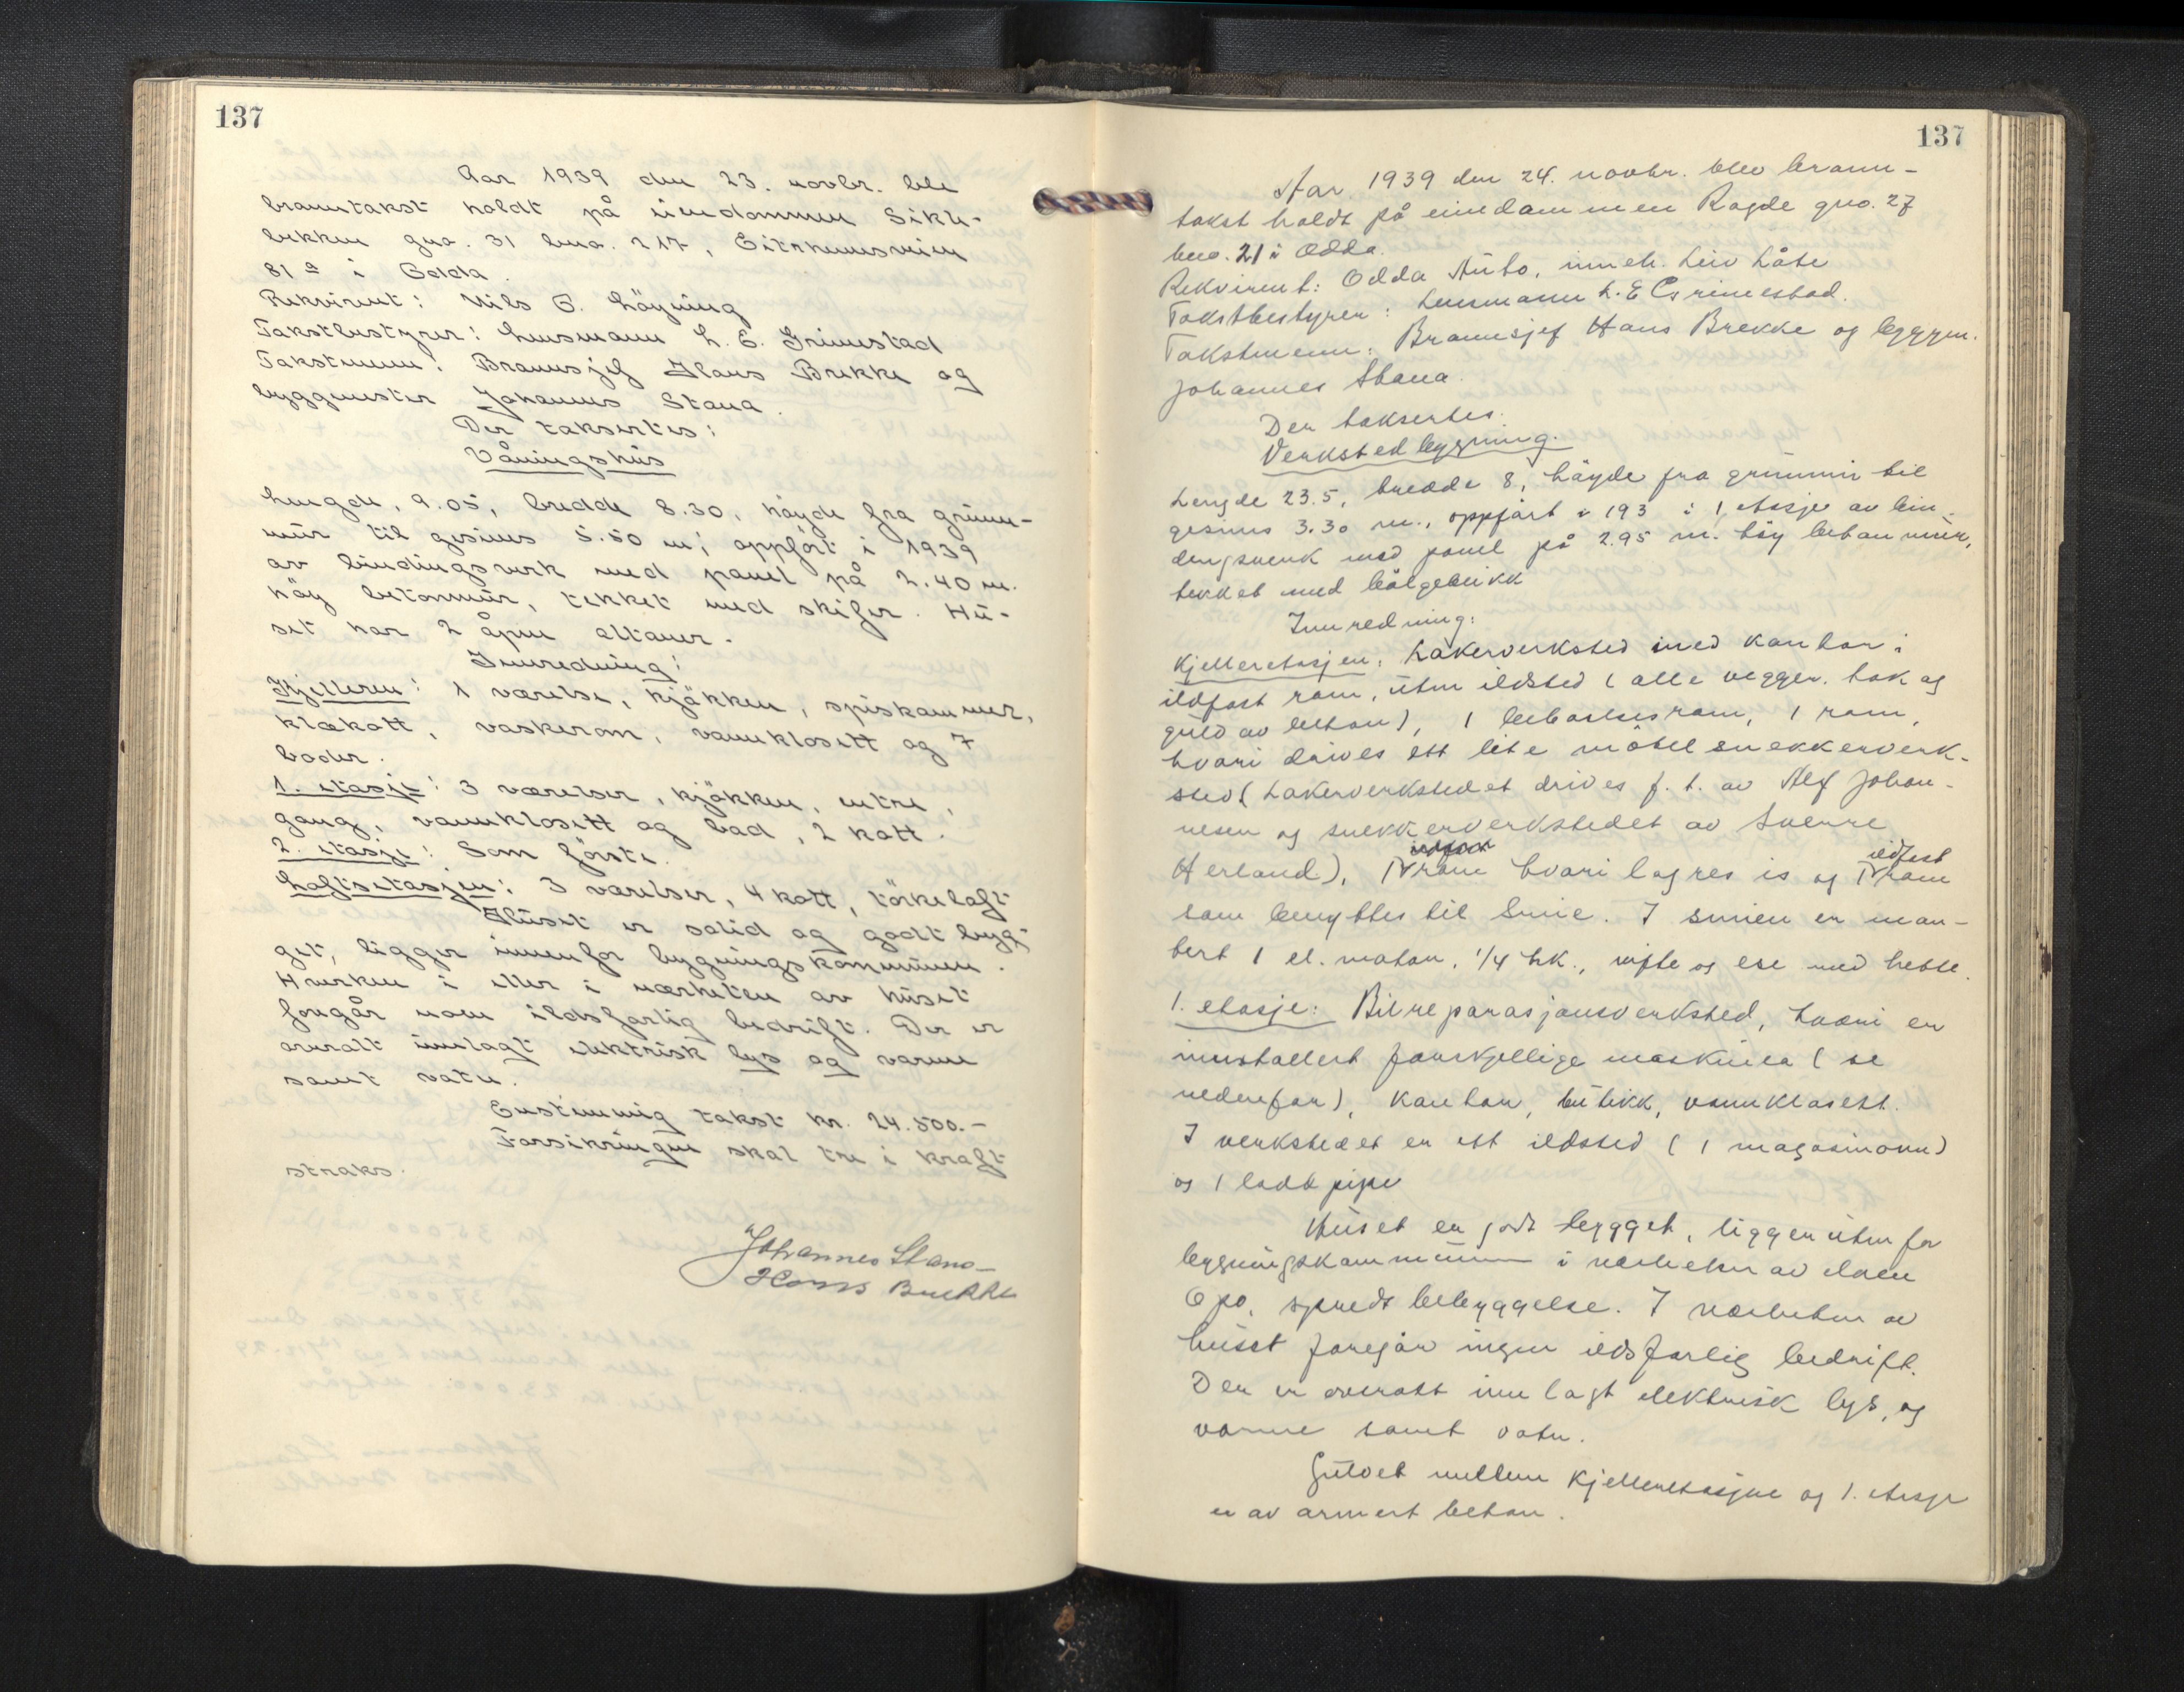 137
Aar 1939 den 23. novbr. ble
branntakst holdt på eiendommen Sikle-
bekken gno. 31 bno. 217, Eitrheimsveien
81 a i Odda.
Rekvirent: Nils O. Löyning
Takstbestyrer: Lensmann L. E. Grimestad
Takstmenn: Brannsjef Hans Brekke og
byggmester Johannes Stana.
Der taksertes:
Våningshus
Lengde, 9.05, bredde 8.30, höyde fra grunn-
mur til gesims 5.50 m; oppfört i 1939
av bindingsverk med panel på 2.40 m.
höy betonmur, tekket med skifer. Hu-
set har 2 åpne altaner.
Innredning:
Kjelleren: 1 værelse, kjökken, spiskammer,
klækott, vaskerom, vannklosett og 7
boder.
1. etasje: 3 værelser, kjökken, entre,
gang, vannklosett og bad, 2 kott.
2. etasje: Som förste.
Loftsetasjen: 3 værelser, 4 kott, törkeloft
Huset er solid og godt byg-
get, ligger innenfor bygningskommunen.
Hverken i eller i nærheten av huset
foregår noen ildsfarlig bedrift. Der er
overalt innlagt elektrisk lys og varme
samt vatn.
Enstemmig takst kr. 24.500.-
Forsikringen skal tre i kraft
straks.
Johannes Stana
Hans Brekke
137
Aar 1939 den 24. novbr. blev brann-
takst holdt på eiendommen Ragde gno. 27
bno. 21 i Odda.
Rekvirent: Odda Auto, inneh. Leiv Låte
Takstbestyrer: Lensmann L. E Grimestad.
Takstmenn: Brannsjef Hans Brekke og byggm.
Johannes Stana.
Der taksertes.
Verkstedbygning.
Lengde 23.5, bredde 8, höyde fra grunnmur til
gesims 3.30 m., oppfört i 193 i 1 etasje av bin-
dingsverk med panel på 2.95 m. höy betonmur,
tekket med bölgeblikk
Innredning:
Kjelleretasjen: Lakerverksted med kontor i
ildfast rom, uten ildsted (alle vegger, tak og
gulv av beton), 1 rom, 1 rom,
hvori drives ett lite möbelsnekkerverk-
sted (Lakerverkstedet drives f. t. av Alf Johan-
nesen og snekkerverkstedet av Sverre
Herland), 1 rom hvori lagres is og 1 ildfast rom
som benyttes til smie. I smien er mon-
tert 1 el. motor, 1/4 hk., vifte og ese med hette.
1. etasje: Bilreparasjonsverksted, hvori er
installert forskjellige maskiner (se
nedenfor), kontor, butikk, vannklosett.
I verkstedet er ett ildsted (1 magasinovn)
og 1 lodd pipe
Huset er godt bygget, ligger utenfor
bygningskommunen i nærheten av elven
Opo, spredt bebyggelse. I nærheten av
huset foregår ingen ildsfarlig bedrift.
Der er overalt innlagt elektrisk lys, og
varme samt vatn.
Gulvet mellem kjelleretasjen og 1. etasje
er av armert beton.